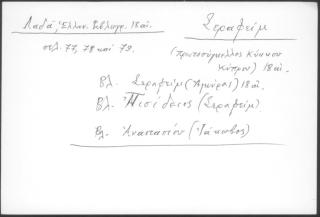 Λαδᾶ, Ἑλλην. Βιβλιογρ. 18 αἰ.
σελ. 77, 78 καί 79.
Σεραφείμ
(πρωτοσύγκελλος Κύκκου
Κύπρου) 18 αἰ.
Βλ. Σεραφείμ (Ἀγκύρας) 18 αἰ.
Βλ. Πισίδειος (Σεραφείμ)
Βλ. Ἀναστασίου (Ἰάκωβος)